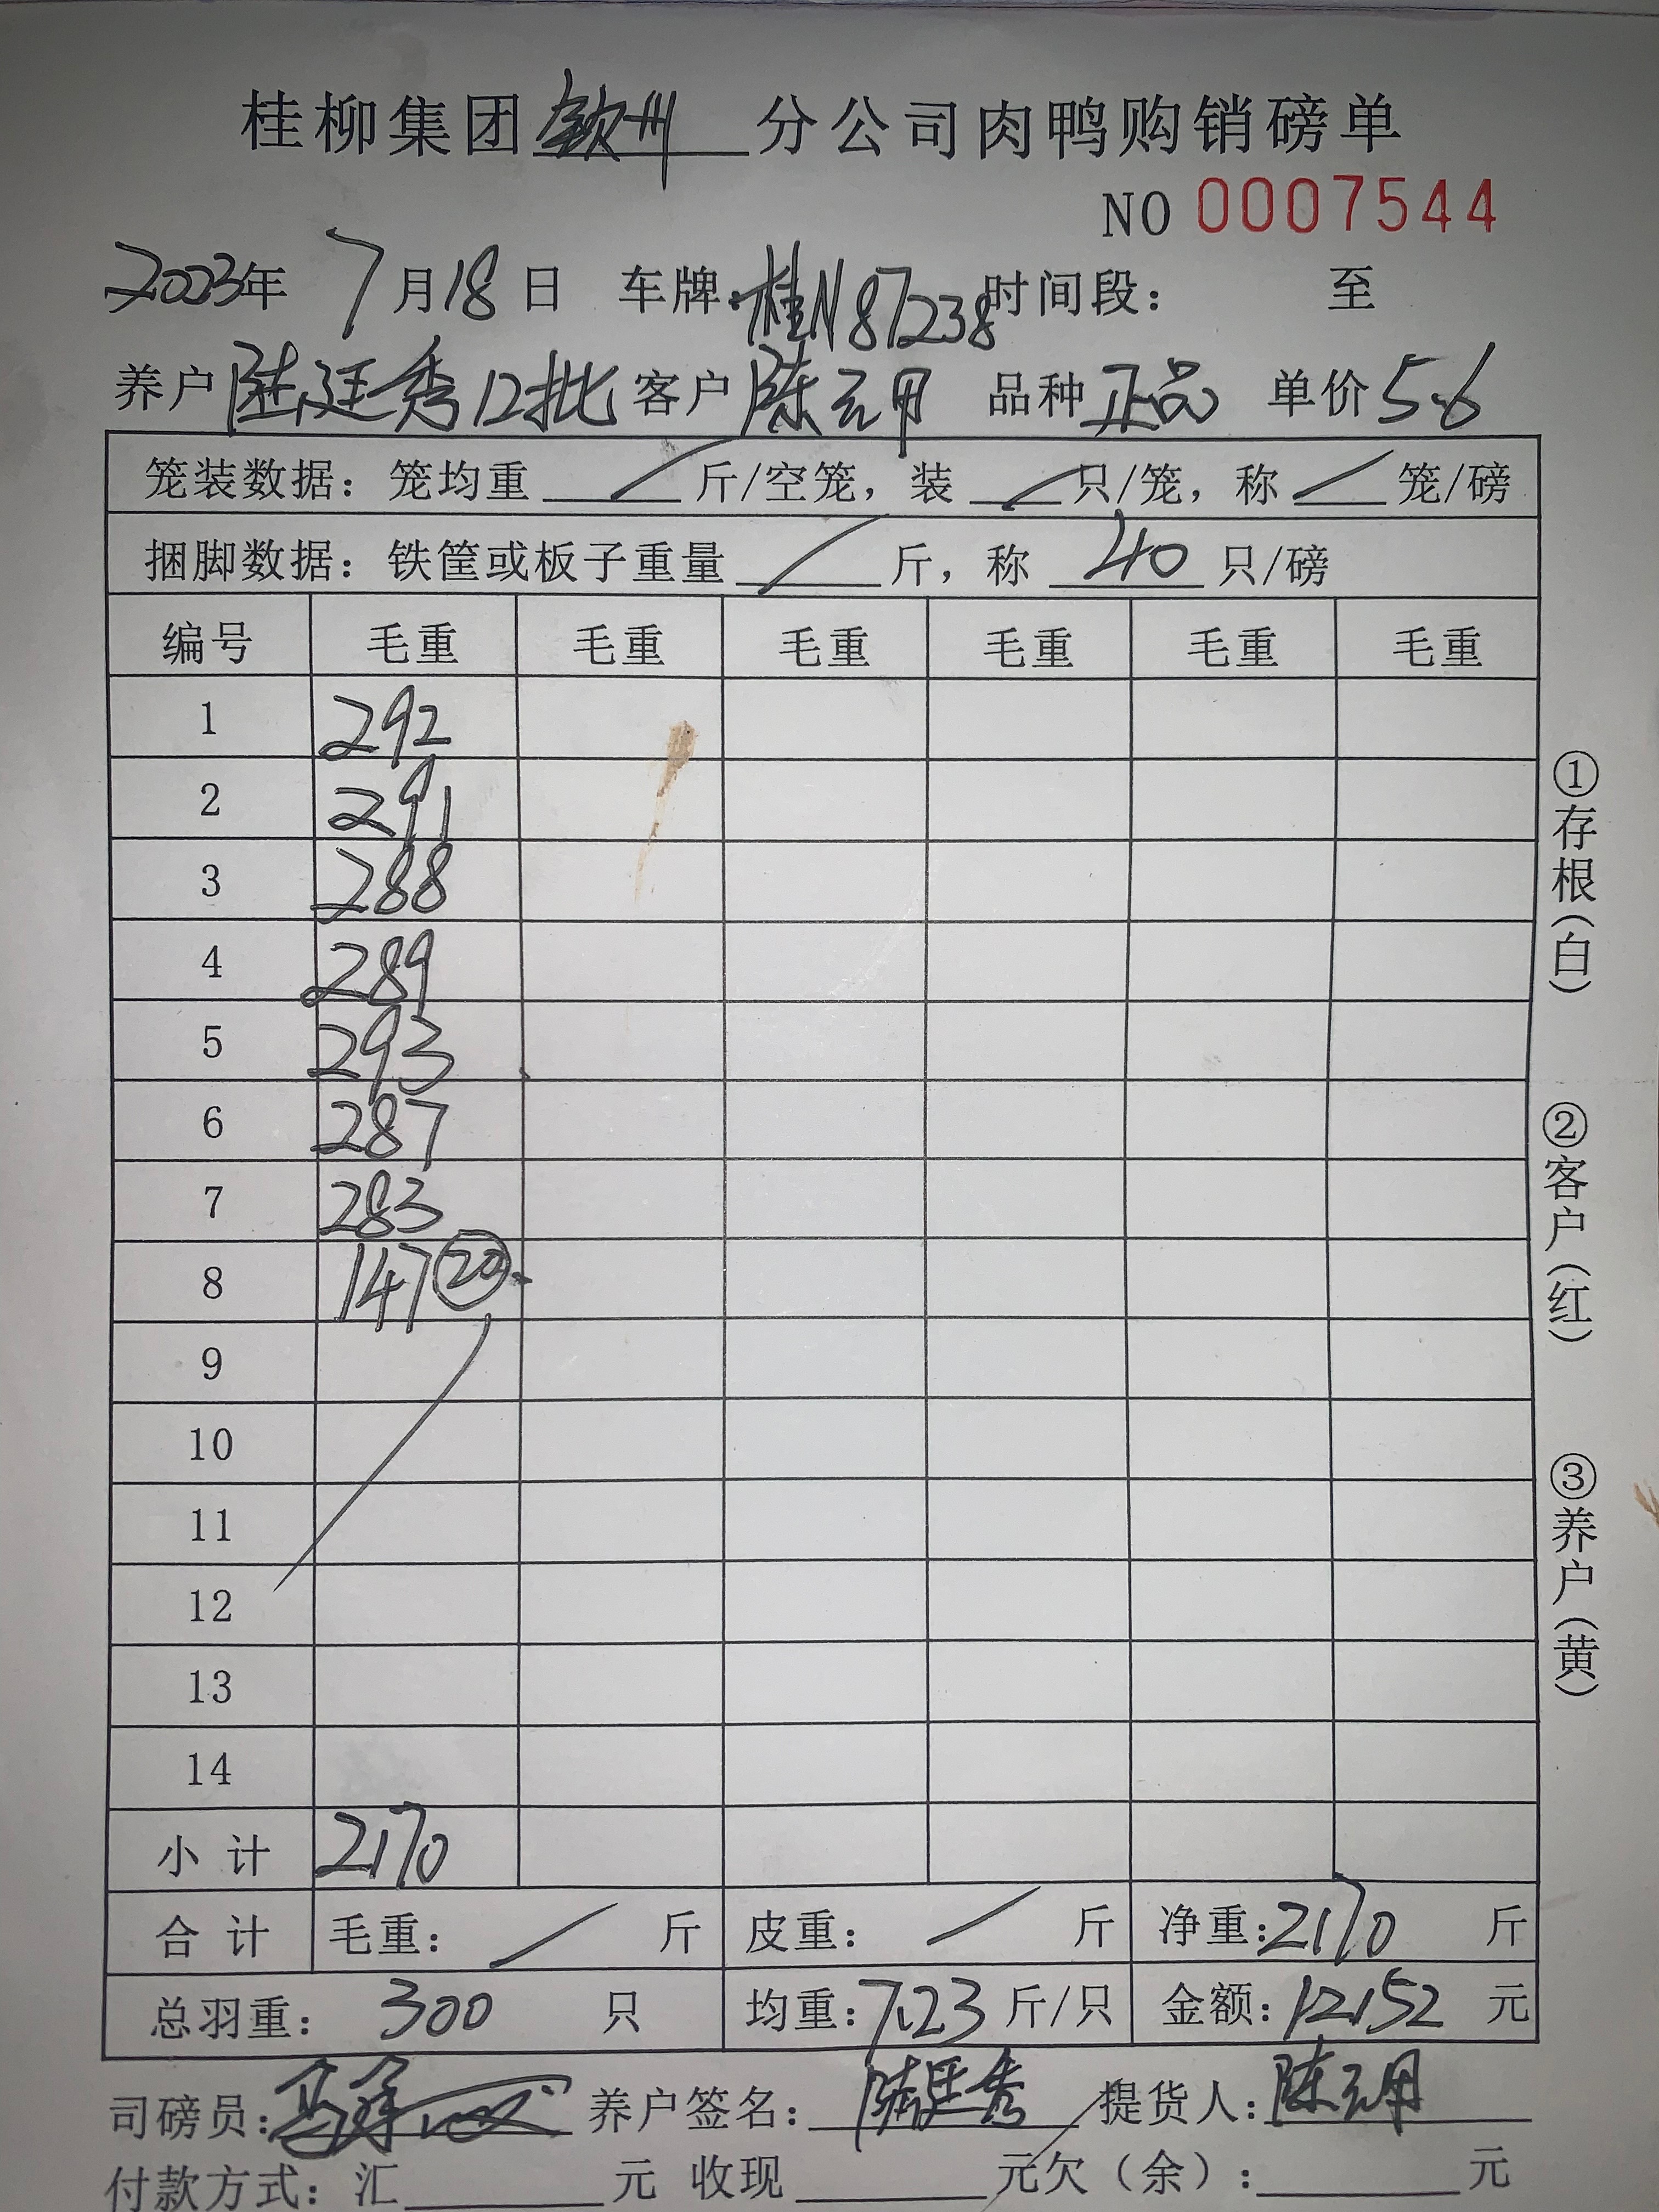 桂柳集团钦州分公司肉鸭购销磅单
NO 0007544
2023年 7月18日 车牌:桂N87238 时间段: 至
养户 陆廷秀12批 客户 陈元月 品种 正品 单价 5.6
笼装数据: 笼均重 / 斤/空笼, 装 / 只/笼, 称 / 笼/磅
捆脚数据: 铁筐或板子重量 / 斤, 称 40 只/磅
编号 毛重 毛重 毛重 毛重 毛重 毛重
1 292
2 291
3 288
4 289
5 293
6 287
7 283
8 147 ⑳
9
10
11
12
13
14
小计 2170
合计 毛重: / 斤 皮重: / 斤 净重: 2170 斤
总羽重: 300 只 均重: 7.23 斤/只 金额: 12152 元
司磅员: 养户签名: 陆廷秀 提货人: 陈元月
付款方式: 汇 元 收现 元欠(余): 元
①存根(白)
②客户(红)
③养户(黄)